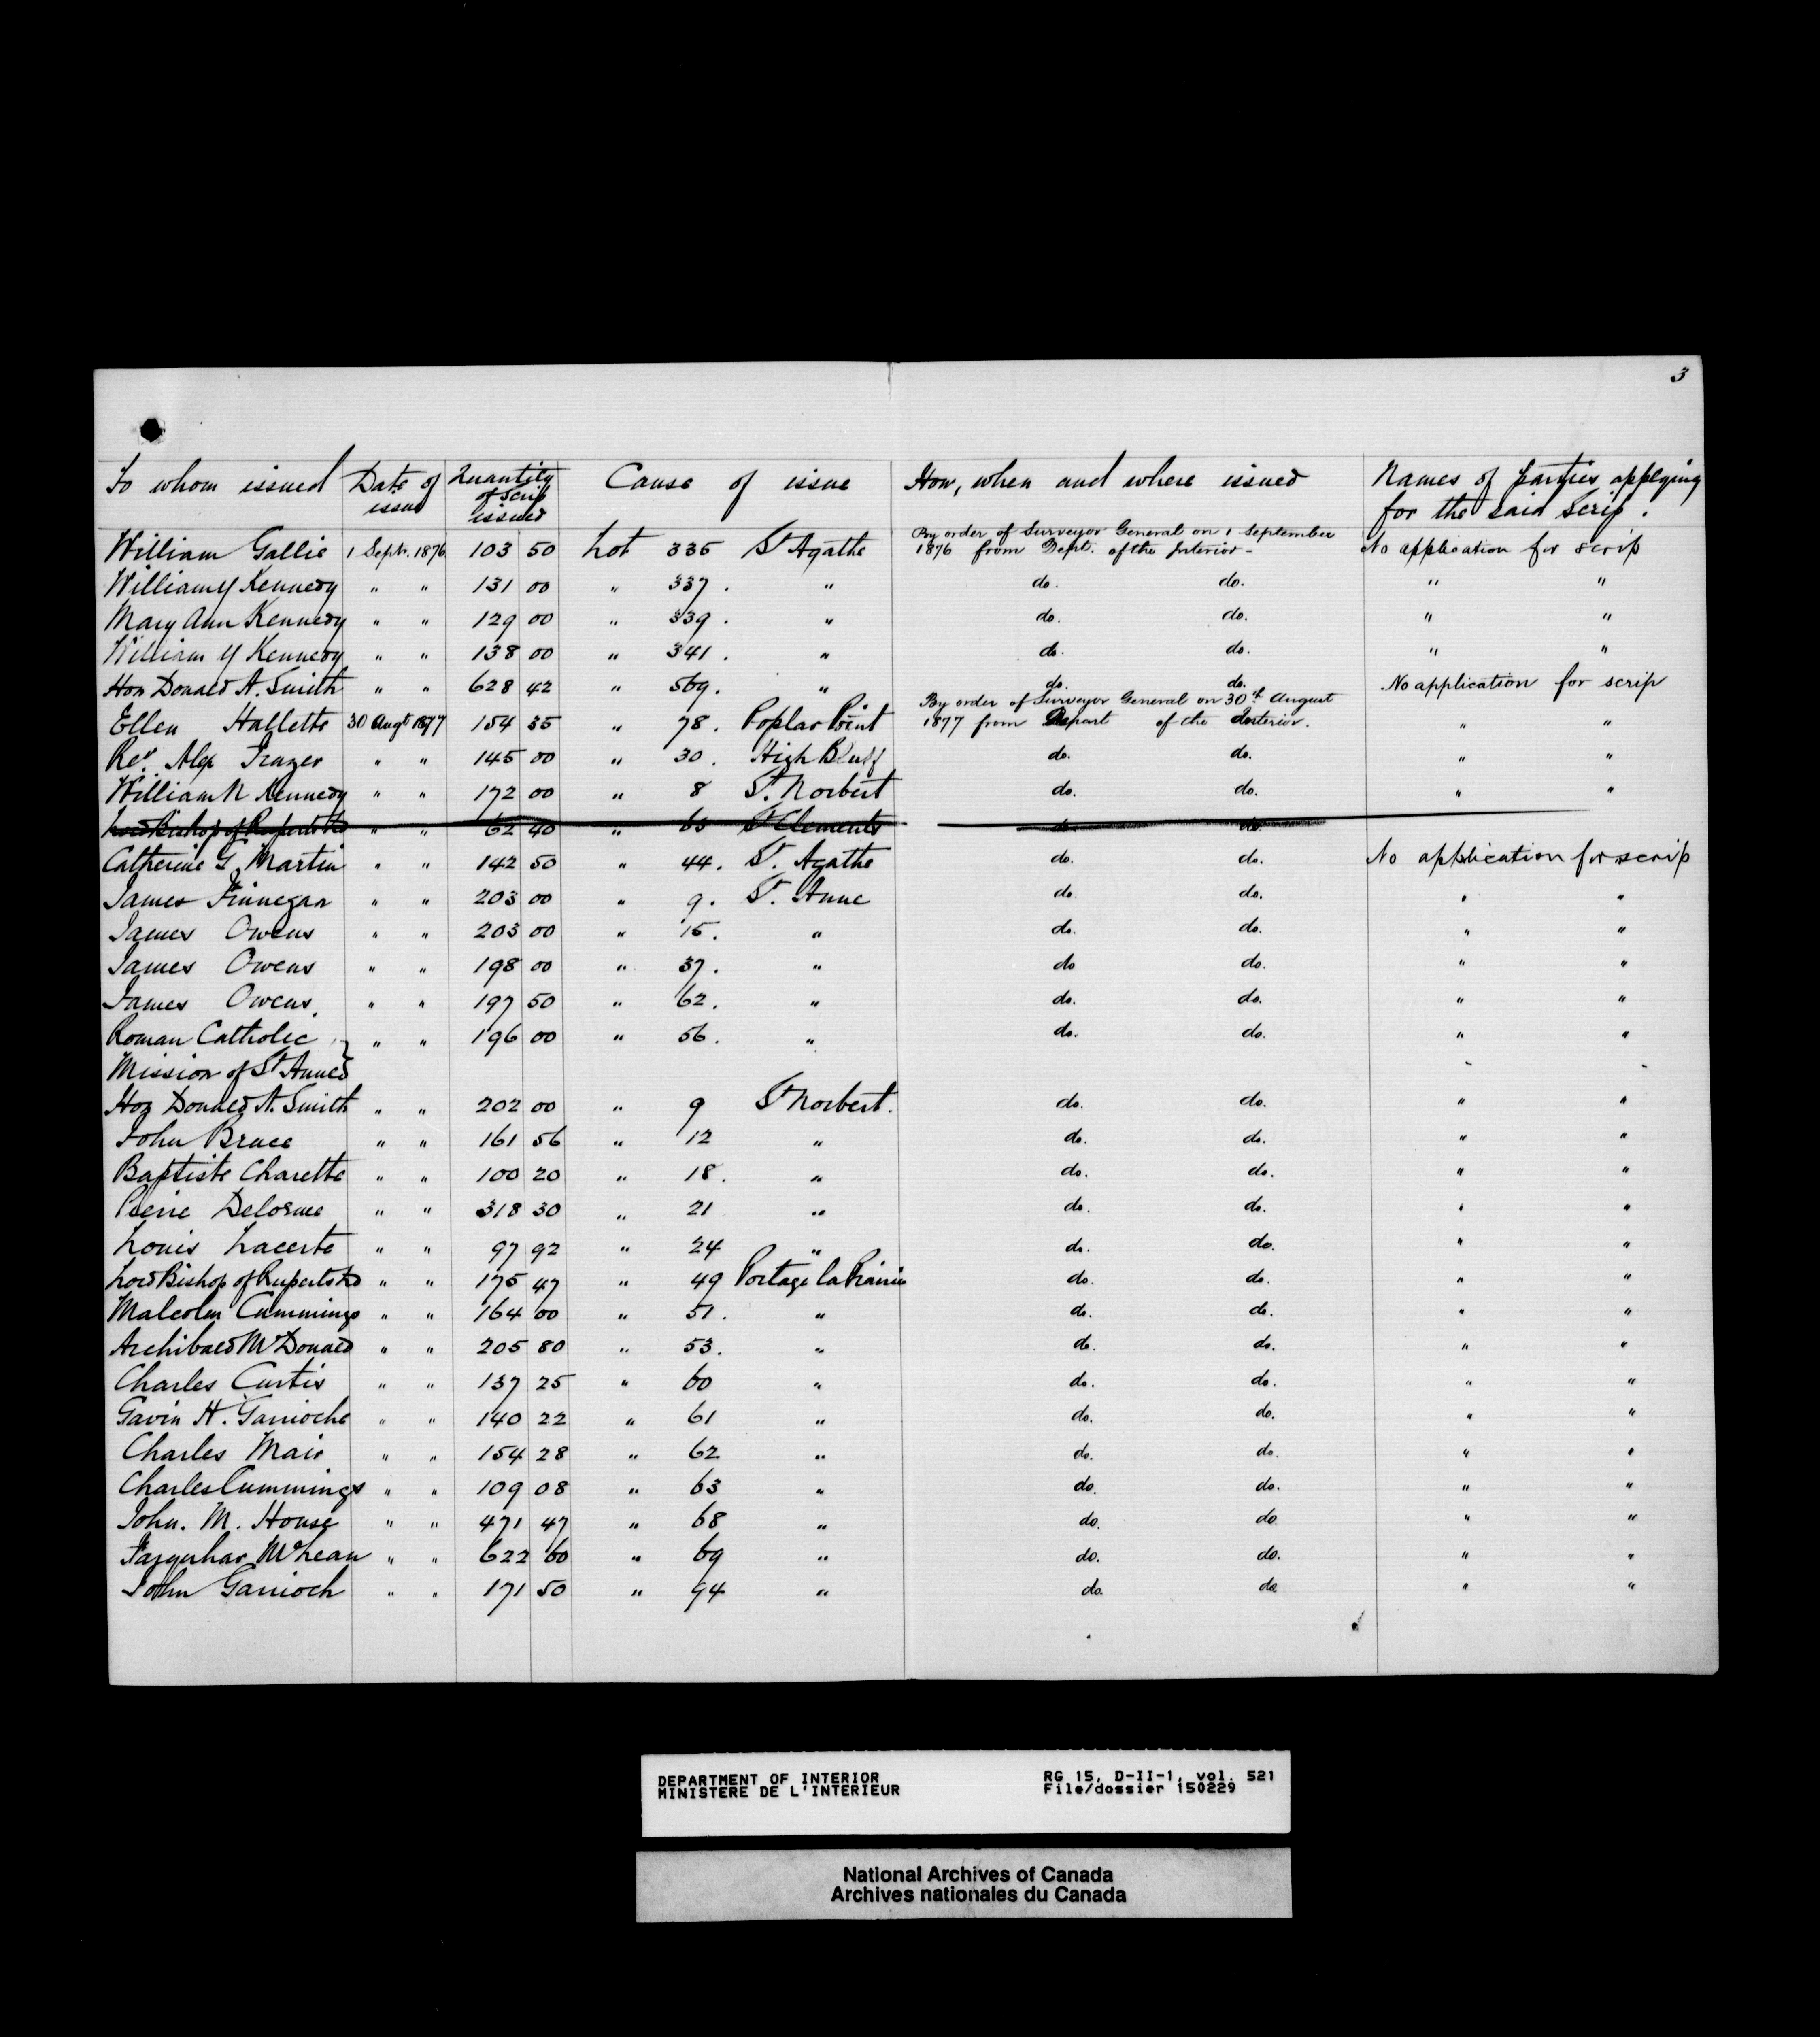 3
To whom issued Date of issue Quantity of scrip issued Cause of issue How, when and where issued Names of parties applying for the said Scrip.
William Gallie 1 Sept. 1876 103 50 Lot 335 St Agathe By order of Surveyor General on 1 September 1876 from Dept. of the Interior - No application for scrip
William Kennedy " " 131 00 " 337. " do. do. " "
Mary Ann Kennedy " " 129 00 " 339. " do. do. " "
William Kennedy " " 138 00 " 341. " do. do. " "
Hon Donald A. Smith " " 628 42 " 569. " do. do. No application for scrip
Ellen Hallette 30 Augt 1877 154 35 " 78. Poplar Point By order of Surveyor General on 30th August 1877 from Depart of the Interior. " "
Revd. Alex Frazer " " 145 00 " 30. High Bluff do. do. " "
William N Kennedy " " 172 00 " 8 St. Norbert do. do. " "
Lord Bishop of Ruperts Ld " " 62 40 " 63 St Clements do. do.
Catherine G. Martin " " 142 50 " 44. St. Agathe do. do. No application for scrip
James Finnegan " " 203 00 " 9. St. Anne do. do. " "
James Owens " " 203 00 " 15. " do. do. " "
James Owens " " 198 00 " 37. " do do. " "
James Owens " " 197 50 " 62. " do. do. " "
Roman Catholic } " " 196 00 " 56. " do. do. " "
Mission of St Annes
Hon Donald A. Smith " " 202 00 " 9 St Norbert. do. do. " "
John Bruce " " 161 56 " 12 " do. do. " "
Baptiste Charette " " 100 20 " 18. " do. do. " "
Pierre Delorme " " 318 30 " 21 " do. do. " "
Louis Lacerte " " 97 92 " 24 " do. do. " "
Lord Bishop of Ruperts Ld " " 175 47 " 49 Portage la Prairie do. do. " "
Malcolm Cummings " " 164 00 " 51. " do. do. " "
Archibald McDonald " " 205 80 " 53. " do. do. " "
Charles Curtis " " 137 25 " 60 " do. do. " "
Gavin H. Garrioche " " 140 22 " 61 " do. do. " "
Charles Mair " " 154 28 " 62 " do. do. " "
Charles Cummings " " 109 08 " 63 " do. do. " "
John. M. House " " 471 47 " 68 " do. do " "
Farquhar McLean " " 622 60 " 69 " do. do. " "
John Garrioch " " 171 50 " 94 " do. do. " "
DEPARTMENT OF INTERIOR RG 15, D-II-1, vol. 521
MINISTERE DE L'INTERIEUR File/dossier 150229
National Archives of Canada
Archives nationales du Canada